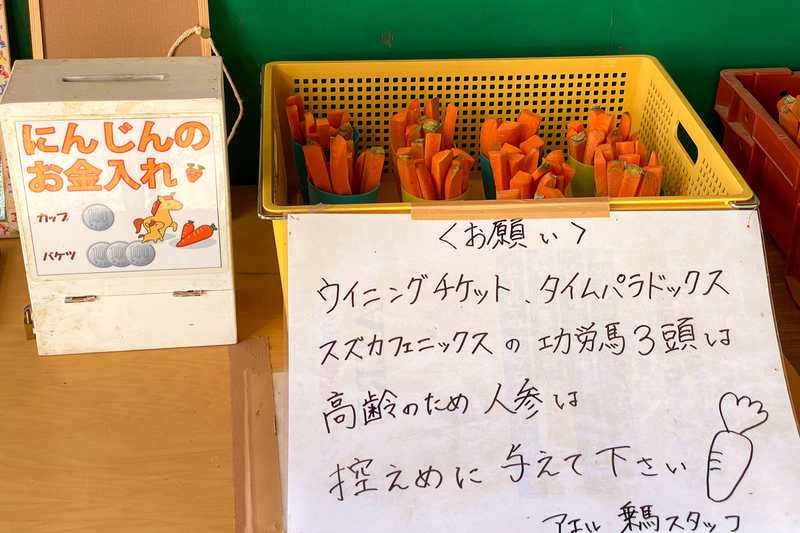 にんじんの
お金入れ
カップ
バケツ
＜お願い＞
ウイニングチケット、タイムパラドックス
スズカフェニックスの功労馬3頭は
高齢のため人参は
控えめに与えて下さい
アエル 乗馬スタッフ